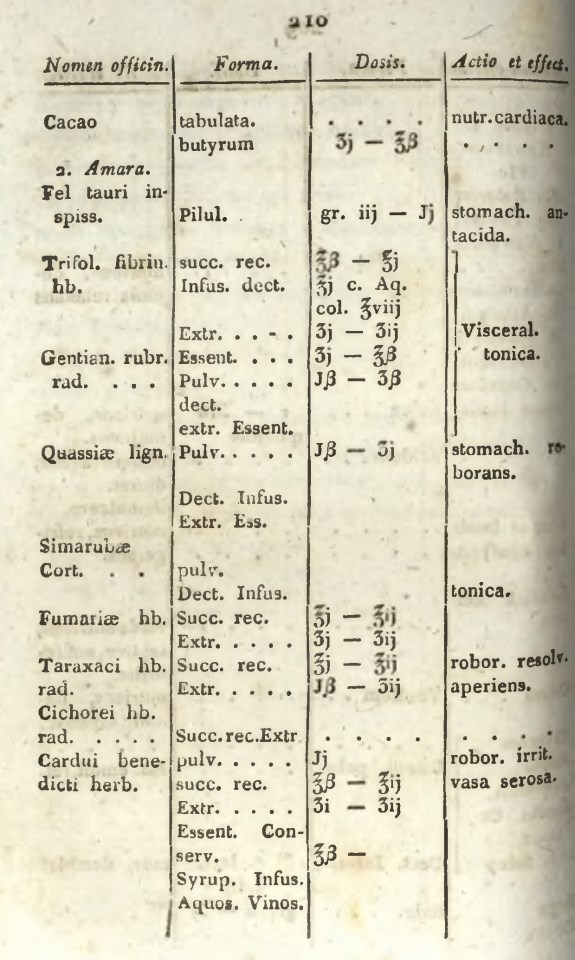 210
Nomen officin. Forma. Dosis. Actio et effect.
Cacao tabulata. . . . . nutr. cardiaca.
butyrum ʒj — ℥β . . . .
2. Amara.
Fel tauri in-
spiss. Pilul. . gr. iij — ℈j stomach. an-
tacida.
Trifol. fibrin. succ. rec. ℥β — ℥j
hb. Infus. dect. ℥j c. Aq.
col. ℥viij
Extr. . . . . ʒj — ʒij Visceral.
Gentian. rubr. Essent. . . . ʒj — ℥β tonica.
rad. . . . Pulv. . . . . ℈β — ʒβ
dect.
extr. Essent.
Quassiæ lign. Pulv. . . . . ℈β — ʒj stomach. ro-
borans.
Dect. Infus.
Extr. Ess.
Simarubæ
Cort. . . pulv.
Dect. Infus. tonica.
Fumariæ hb. Succ. rec. ℥j — ℥ij
Extr. . . . . ʒj — ʒij
Taraxaci hb. Succ. rec. ℥j — ℥ij robor. resolv.
rad. Extr. . . . . ℈β — ʒij aperiens.
Cichorei hb.
rad. . . . . Succ. rec. Extr . . . . . . . .
Cardui bene- pulv. . . . . ℈j robor. irrit.
dicti herb. succ. rec. ℥β — ℥ij vasa serosa.
Extr. . . . . ʒi — ʒij
Essent. Con-
serv. ℥β —
Syrup. Infus.
Aquos. Vinos.